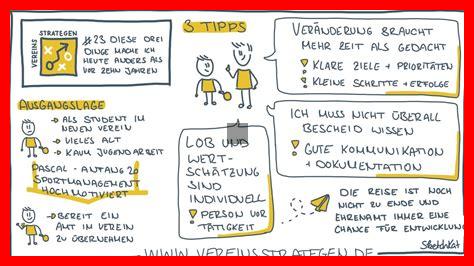 VEREINS
STRATEGEN
#23 DIESE DREI
DINGE MACHE ICH
HEUTE ANDERS ALS
VOR ZEHN JAHREN
AUSGANGSLAGE
→ ALS STUDENT IM
NEUEN VEREIN
→ VIELES ALT
→ KAUM JUGENDARBEIT
PASCAL - ANFANG 20
SPORTMANAGEMENT
HOCHMOTIVIERT
→ BEREIT EIN
AMT IM VEREIN
ZU ÜBERNEHMEN
3 TIPPS
VERÄNDERUNG BRAUCHT
MEHR ZEIT ALS GEDACHT
! KLARE ZIELE + PRIORITÄTEN
! KLEINE SCHRITTE + ERFOLGE
ICH MUSS NICHT ÜBERALL
BESCHEID WISSEN
! GUTE KOMMUNIKATION
+ DOKUMENTATION
LOB UND
WERT-
SCHÄTZUNG
SIND
INDIVIDUELL
! PERSON VOR
TÄTIGKEIT
DIE REISE IST NOCH
NICHT ZU ENDE UND
EHRENAMT IMMER EINE
CHANCE FÜR ENTWICKLUNG
WWW.VEREINSSTRATEGEN.DE